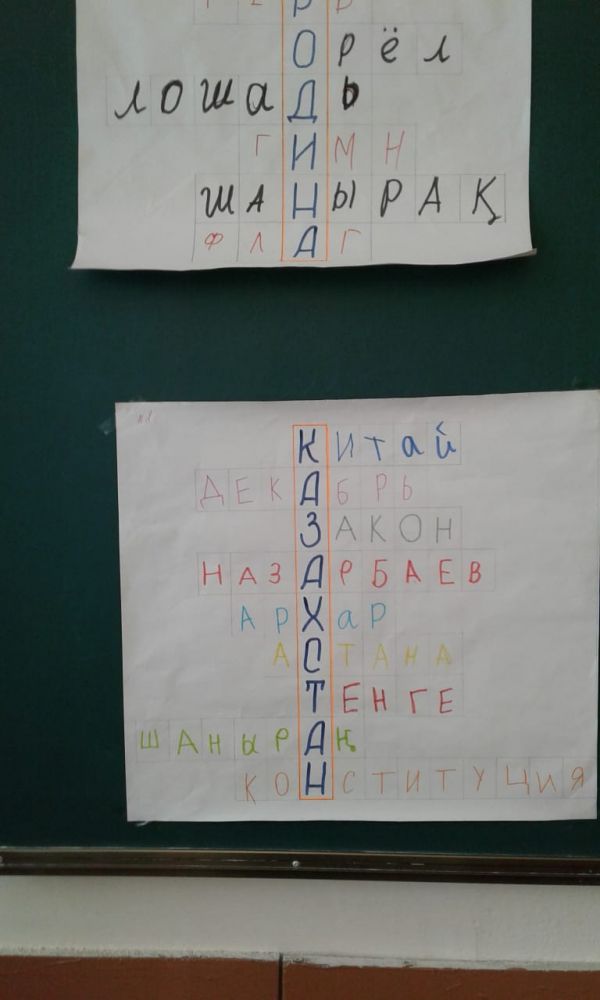 ОРЁЛ
ЛОШАДЬ
ГИМН
ШАНЫРАҚ
ФЛАГ
КИТАЙ
ДЕКАБРЬ
ЗАКОН
НАЗАРБАЕВ
АРХАР
АСТАНА
ТЕНГЕ
ШАНЫРАҢ
КОНСТИТУЦИЯ